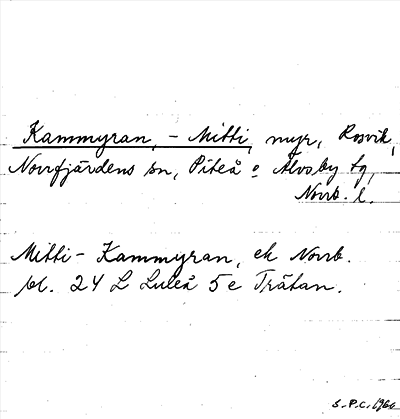 Kammyran, - Mitti, myr, Rosvik,
Norrfjärdens sn, Piteå o Älvsby tg,
Norrb. l.
Mitti - Kammyran, ek Norrb.
bl. 24 L Luleå 5 e Trätan.
S.P.C. 1966